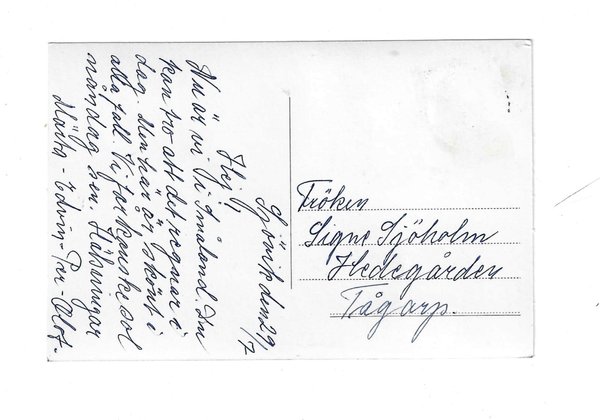 den 29/7
Hej!
Nu är vi i Småland. Du
kan tro att det regnar i
dag. Men här är skönt i
alla fall. Vi får kanske sol
måndag sen. Hälsningar
Märta - Edvin - Per - Olof.
Fröken
Signe Sjöholm
Hedegården
Tågarp.